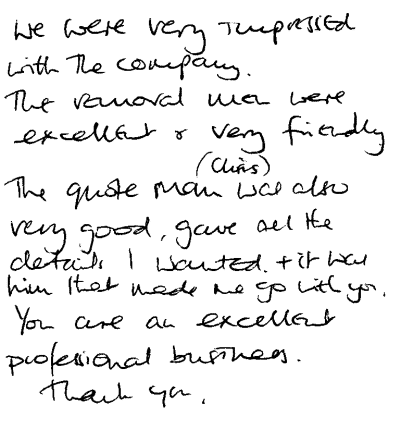 We were very impressed
with the company.
The removal men were
excellent & very friendly
(Chris)
The quote man was also
very good, gave all the
details I wanted. + it was
him that made me go with you.
You are an excellent
professional business.
Thank you.